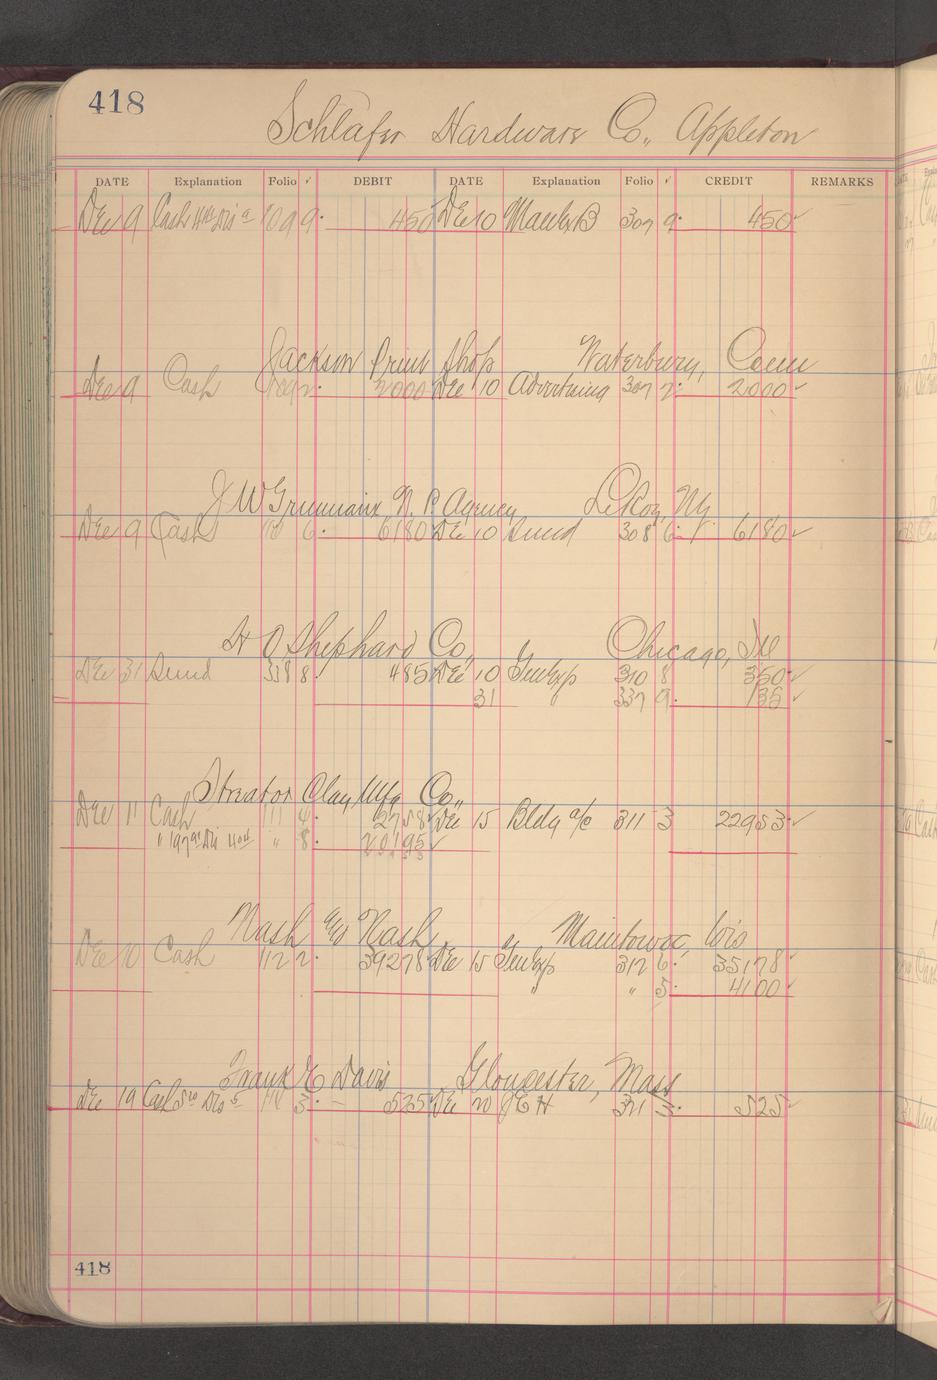 418
Schlafer Hardware Co., Appleton
DATE Explanation Folio ✓ DEBIT DATE Explanation Folio ✓ CREDIT REMARKS
Dec 9 Cash 109 9 450 Dec 10 307 9 450 ✓
Jackson Print Shop Waterbury, Conn
Dec 9 Cash 2000 Dec 10 Advertising 307 2 2000 ✓
J W N. P. Agency LeRoy, Ny
Dec 9 Cash 110 6 6180 Dec 10 Sund 308 6 6180 ✓
H O Shephard Co, Chicago, Ill
Dec 31 Sund 338 8 485 Dec 10 GenExp 310 8 350 ✓
31 " 337 9 135 ✓
Streator Clay Mfg Co.,
Dec 11 Cash 111 4 2758 ✓ Dec 15 Bldg a/c 311 3 22953 ✓
" " 8 20195 ✓
Nash and Nash, Manitowoc, Wis
Dec 10 Cash 112 2 39278 Dec 15 GenExp 312 6 35178 ✓
" " 5 4100 ✓
Frank E Davis Gloucester, Mass
Dec 19 Cash 114 3 525 Dec 20 J E H 321 3 525 ✓
418